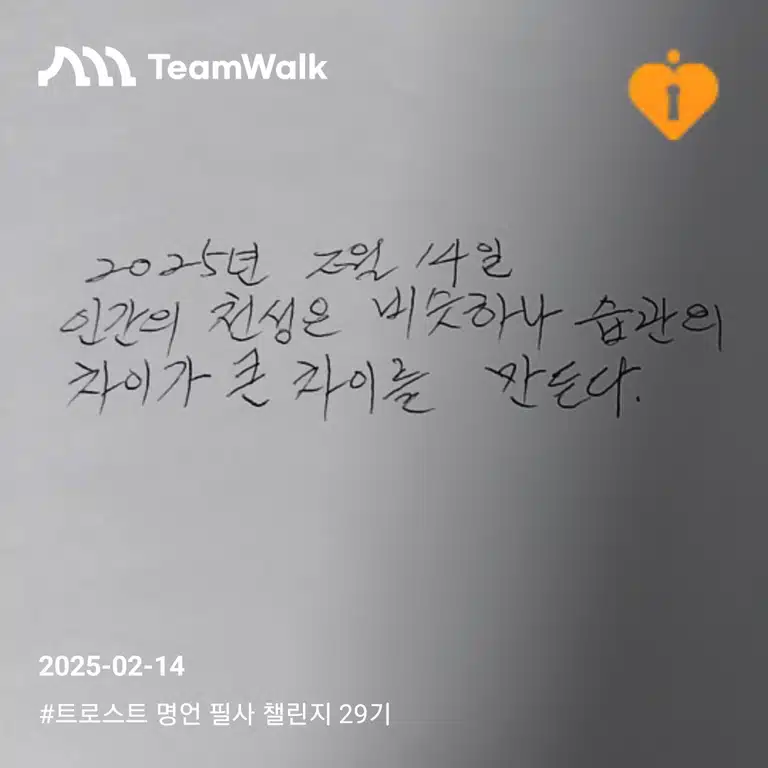 TeamWalk
2025년 2월 14일
인간의 천성은 비슷하나 습관의
차이가 큰 차이를 만든다.
2025-02-14
#트로스트 명언 필사 챌린지 29기